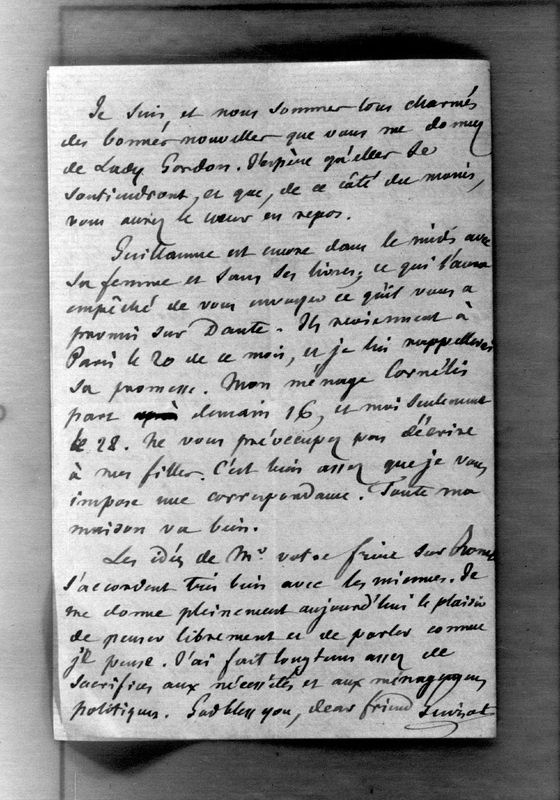 Je suis, et nous sommes tous charmés
des bonnes nouvelles que vous me donnez
de Lady Gordon. J'espère qu'elles se
soutiendront, et que, de ce côté du moins,
vous aurez le cœur en repos.
Guillaume est encore dans le midi avec
sa femme et sans ses livres; ce qui l'aura
empêché de vous envoyer ce qu'il vous a
promis sur Dante. Ils reviennent à
Paris le 20 de ce mois, et je lui rappellerai
sa promesse. Mon ménage Cornélis
part demain 16, et moi seulement
le 28. Ne vous préoccupez pas d'écrire
à mes filles. C'est bien assez que je vous
impose une correspondance. Toute ma
maison va bien.
Les idées de Mr votre frère sur Rome
s'accordent très bien avec les miennes. Je
me donne pleinement aujourd'hui le plaisir
de penser librement et de parler comme
je pense. J'ai fait longtems assez de
sacrifices aux nécessités et aux ménagemens
politiques. God bless you, dear friend
Guizot